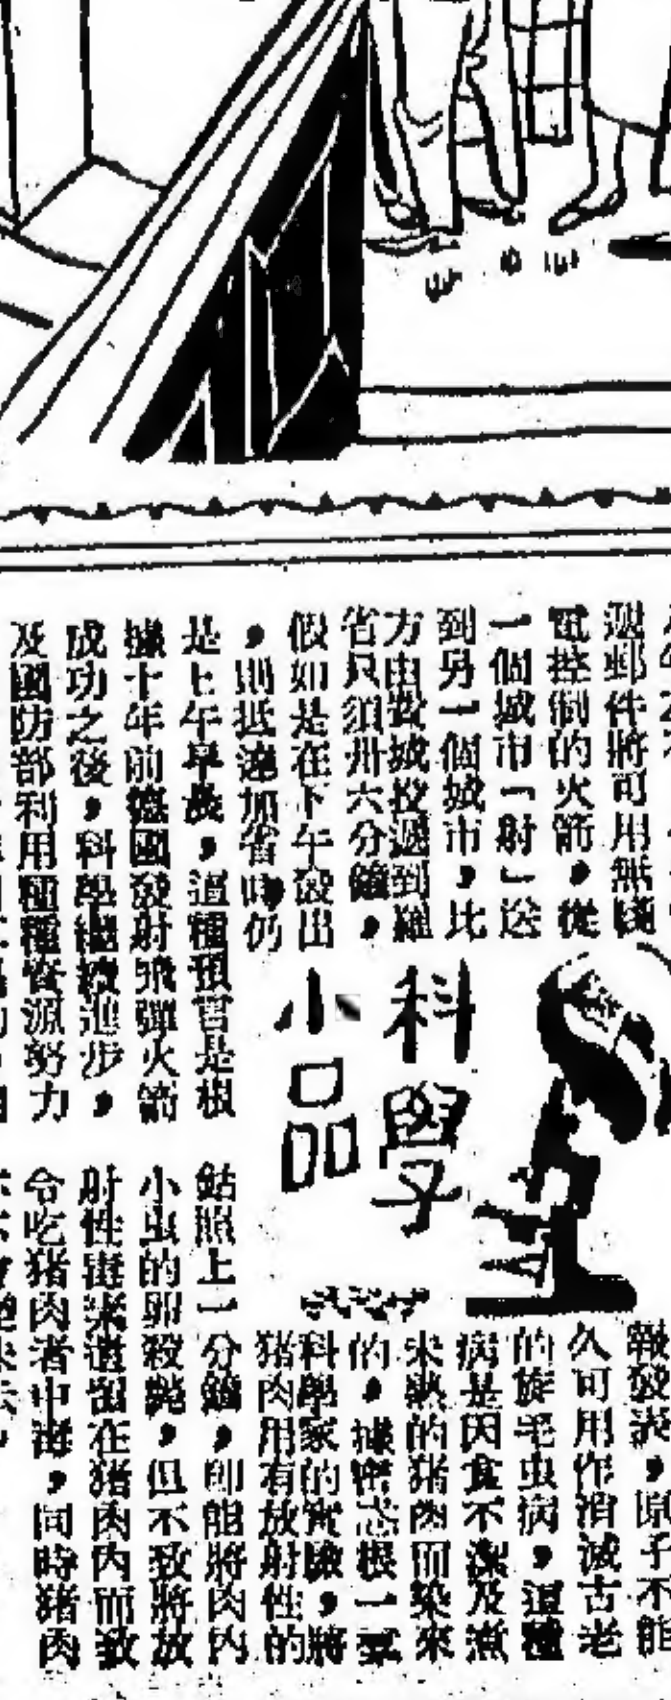 遞郵件將可用無綫
電控制的火箭，從
一個城市「射」送
到另一個城市，比
方由費城投遞到羅
省只須卅六分鐘，
假如是在下午發出
，則抵達加省時仍
是上午早晨，這種預言是根
據十年前德國發射飛彈火箭
成功之後，科學繼續進步，
及國防部利用種種資源努力
科學
小品
報發表，原子不能
久可用作消滅古老
的旋毛虫病，這種
病是因食不潔及煮
未熟的猪肉而染來
的，據密芯根一羣
科學家的實驗，將
猪肉用有放射性的
鈷照上一分鐘，即能將肉內
小虫的卵殺斃，但不致將放
射性毒素遺留在猪肉內而致
令吃猪肉者中毒，同時猪肉